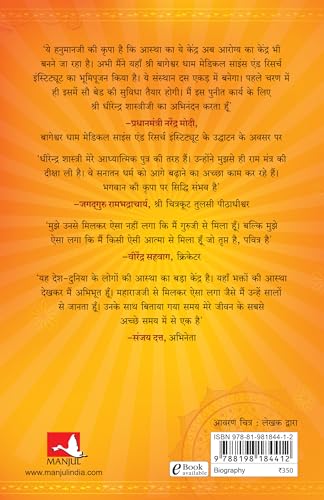 'ये हनुमानजी की कृपा है कि आस्था का ये केंद्र अब आरोग्य का केंद्र भी
बनने जा रहा है। अभी मैंने यहाँ श्री बागेश्वर धाम मेडिकल साइंस एंड रिसर्च
इंस्टिट्यूट का भूमिपूजन किया है। ये संस्थान दस एकड़ में बनेगा। पहले चरण में
ही इसमें सौ बेड की सुविधा तैयार होगी। मैं इस पुनीत कार्य के लिए
श्री धीरेन्द्र शास्त्रीजी का अभिनंदन करता हूँ'
-प्रधानमंत्री नरेंद्र मोदी,
बागेश्वर धाम मेडिकल साइंस एंड रिसर्च इंस्टिट्यूट के उद्घाटन के अवसर पर
'धीरेन्द्र शास्त्री मेरे आध्यात्मिक पुत्र की तरह हैं। उन्होंने मुझसे ही राम मंत्र की
दीक्षा ली है। वे सनातन धर्म को आगे बढ़ाने का अच्छा काम कर रहे हैं।
भगवान की कृपा पर सिद्धि संभव है'
-जगद्गुरु रामभद्राचार्य, श्री चित्रकूट तुलसी पीठाधीश्वर
'मुझे उनसे मिलकर ऐसा नहीं लगा कि मैं गुरुजी से मिला हूँ। बल्कि मुझे
ऐसा लगा कि मैं किसी ऐसी आत्मा से मिला हूँ जो तृप्त है, पवित्र है'
-वीरेंद्र सहवाग, क्रिकेटर
'यह देश-दुनिया के लोगों की आस्था का बड़ा केंद्र है। यहाँ भक्तों की आस्था
देखकर मैं अभिभूत हूँ। महाराजजी से मिलकर ऐसा लगा जैसे मैं उन्हें सालों
से जानता हूँ। उनके साथ बिताया गया समय मेरे जीवन के सबसे
अच्छे समय में से एक है'
-संजय दत्त, अभिनेता
आवरण चित्र : लेखक द्वारा
ISBN 978-81-981844-1-2
9 788198 184412
MANJUL
www.manjulindia.com
eBook
available
Biography
₹350